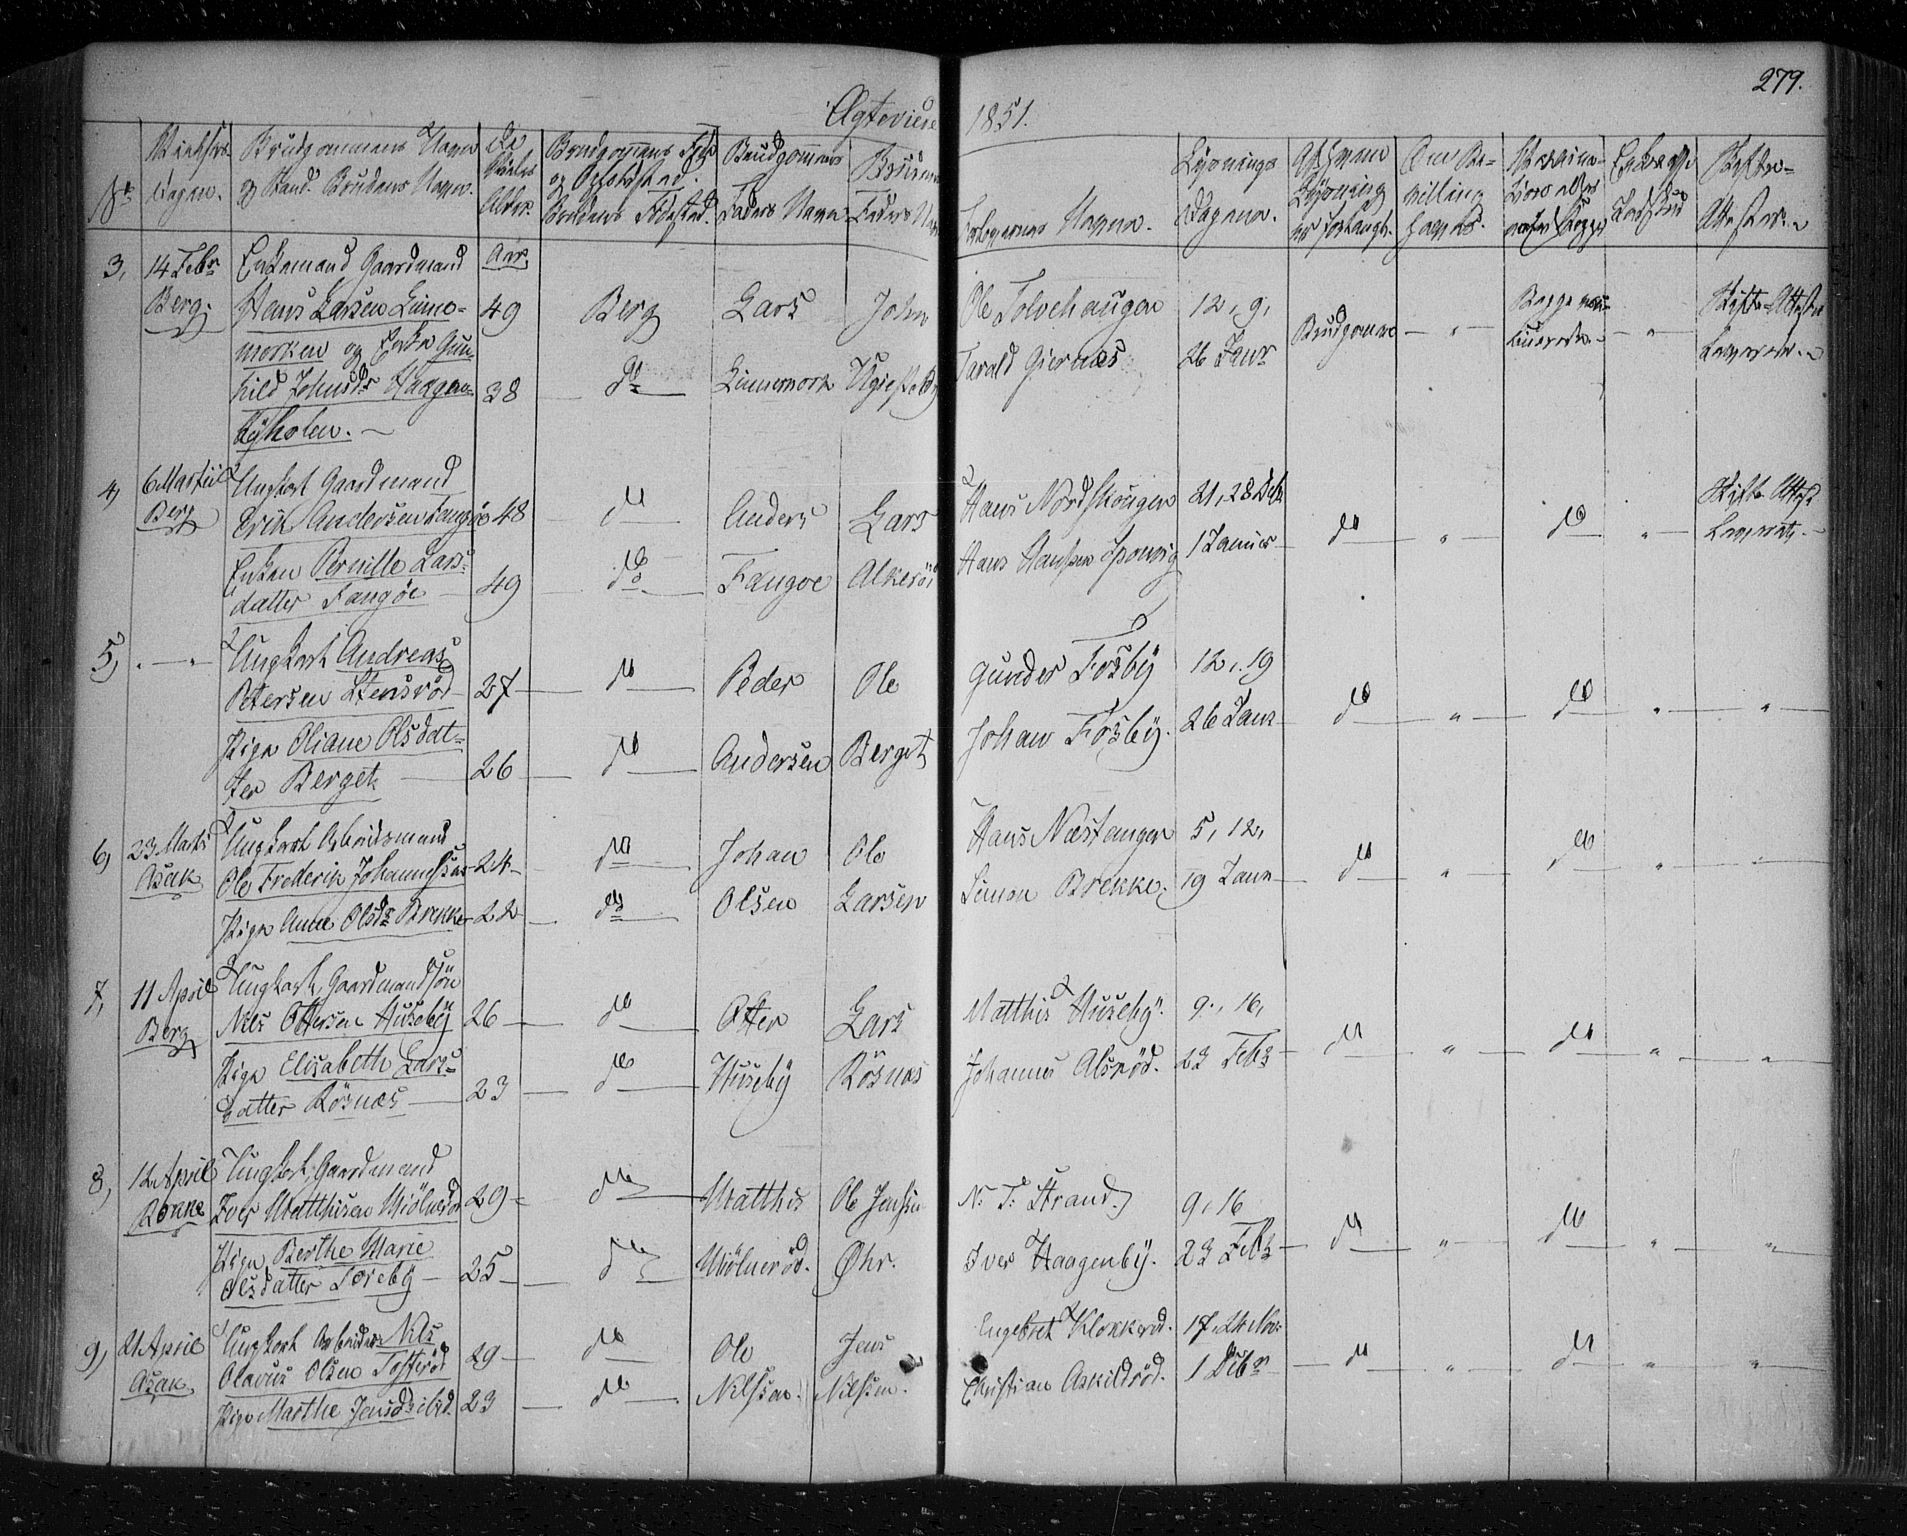 279.
Ægteviede 1851.
No
Vielses
Dagen.
Brudgommens Navn
og Stand. Brudens Navn.
De
Viedes
Alder.
Brudgommens Føde
og Opholdssted.
Brudens Fødested.
Brudgommens
Faders Navn
Brudens
Faders Navn
Forlovernes Navne.
Lysnings
Dagene.
Af hvem
Lysning
er forlangt.
Om Be-
villing
havdes.
Skifte-
Attester.
3, 14 Febr
Berg.
Enkemand Gaardmand
Hans Larsen Liime-
morken og Enke Gun-
hild Johnsdr Haagen-
byholen.
Aar.
49
38
Berg
do
Lars
Liimemork
John
Ole Tolvehaugen
Tarald Giernæs
12, 9,
26 Janr
Brudgommen — " —
Begge vac-
cinerede.
— " —
Skifte-Attester
Leverede.
4, 6 Martii
Berg
Ungkarl Gaardmand
Erik Andersen Fangöe
Enken Pernille Lars-
datter Fangöe
48
49
do
do
Anders
Fangoe
Lars
Alkeröd
Hans Nordskougen
Hans Hansen
21, 28 Debr
1 Januar
do " do "
Skifte Attest
Leveret.
5, " — "
Ungkarl Andreas
Pettersen Stensröd
Pige Oliane Olsdat-
ter Berget
27
26
do
do
Peder
Andersen
Ole
Berget
Gunder Fosby
Johan Fosby.
12, 19
26 Janr
do " do " "
6, 23 Marts
Asak
Ungkarl Arbeidsmand
Ole Frederik Johannessen
Pige Anne Olsdr Brekke
24
22
do
do
Johan
Olsen
Ole
Larsen
Hans Næstangen
Simen Brekke.
5, 12,
19 Janr
do " do " "
7, 11 April
Berg
Ungkarl, Gaardmandssön
Nils Ottersen Huseby
Pige Elisabeth Lars-
datter Rösnæs
26
23
do
do
Otter
Huseby
Lars
Rösnæs
Matthis Huseby.
Johannes Alsröd.
9, 16,
23 Febr
do " do " "
8, 12 April
Rokke
Ungkarl, Gaardmand
Iver Matthisen Miölneröd
Pige Berthe Marie
Olsdatter Soreby
29
25
do
do
Matthis
Miölneröd.
Ole Jensen
Øhr.
N. T. Strand.
Iver Haagenby.
9, 16
23 Febr
do " do " "
9, 21 April
Asak,
Ungkarl Arbeider Nils
Olavus Olsen Tosteröd
Pige Marthe Jensdr ibid.
29
23
do
do
Ole
Nilssen.
Jens
Nilssen.
Engebret Klokkeröd.
Christian Askildröd.
17, 24 Nov.
1 Debr
do " do " "